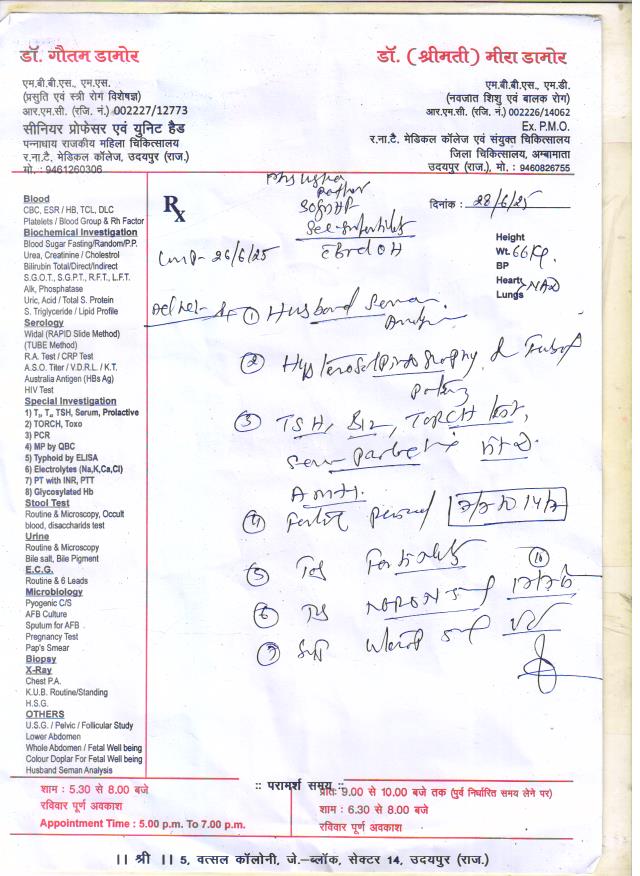 डॉ. गौतम डामोर
एम.बी.बी.एस., एम.एस.
(प्रसुति एवं स्त्री रोग विशेषज्ञ)
आर.एम.सी. (रजि. नं.) 002227/12773
सीनियर प्रोफेसर एवं युनिट हैड
पन्नाधाय राजकीय महिला चिकित्सालय
र.ना.टै. मेडिकल कॉलेज, उदयपुर (राज.)
मो. : 9461260306
डॉ. (श्रीमती) मीरा डामोर
एम.बी.बी.एस., एम.डी.
(नवजात शिशु एवं बालक रोग)
आर.एम.सी. (रजि. नं.) 002226/14062
Ex. P.M.O.
र.ना.टै. मेडिकल कॉलेज एवं संयुक्त चिकित्सालय
जिला चिकित्सालय, अम्बामाता
उदयपुर (राज.), मो. : 9460826755
Blood
CBC, ESR / HB, TCL, DLC
Platelets / Blood Group & Rh Factor
Biochemical Investigation
Blood Sugar Fasting/Random/P.P.
Urea, Creatinine / Cholestrol
Bilirubin Total/Direct/Indirect
S.G.O.T., S.G.P.T., R.F.T., L.F.T.
Alk, Phosphatase
Uric, Acid / Total S. Protein
S. Triglyceride / Lipid Profile
Serology
Widal (RAPID Slide Method)
(TUBE Method)
R.A. Test / CRP Test
A.S.O. Titer / V.D.R.L. / K.T.
Australia Antigen (HBs Ag)
HIV Test
Special Investigation
1) T₃, T₄, TSH, Serum, Prolactive
2) TORCH, Toxo
3) PCR
4) MP by QBC
5) Typhoid by ELISA
6) Electrolytes (Na,K,Ca,Cl)
7) PT with INR, PTT
8) Glycosylated Hb
Stool Test
Routine & Microscopy, Occult
blood, disaccharids test
Urine
Routine & Microscopy
Bile salt, Bile Pigment
E.C.G.
Routine & 6 Leads
Microbiology
Pyogenic C/S
AFB Culture
Sputum for AFB
Pregnancy Test
Pap's Smear
Biopsy
X-Ray
Chest P.A.
K.U.B. Routine/Standing
H.S.G.
OTHERS
U.S.G. / Pelvic / Follicular Study
Lower Abdomen
Whole Abdomen / Fetal Well being
Colour Doplar For Fetal Well being
Husband Seman Analysis
Rx
दिनांक : 28/6/25
Height
Wt. 66 Kg
BP
Heart
Lungs NAD
LMP - 26/6/25
① Husband Semen
②
③ TSH, B12, TORCH test,
Vit D.
AMH.
④
⑤
⑥
⑦
:: परामर्श समय ::
शाम : 5.30 से 8.00 बजे
रविवार पूर्ण अवकाश
Appointment Time : 5.00 p.m. To 7.00 p.m.
प्रातः 9.00 से 10.00 बजे तक (पुर्व निर्धारित समय लेने पर)
शाम : 6.30 से 8.00 बजे
रविवार पूर्ण अवकाश
।। श्री ।। 5, वत्सल कॉलोनी, जे.–ब्लॉक, सेक्टर 14, उदयपुर (राज.)